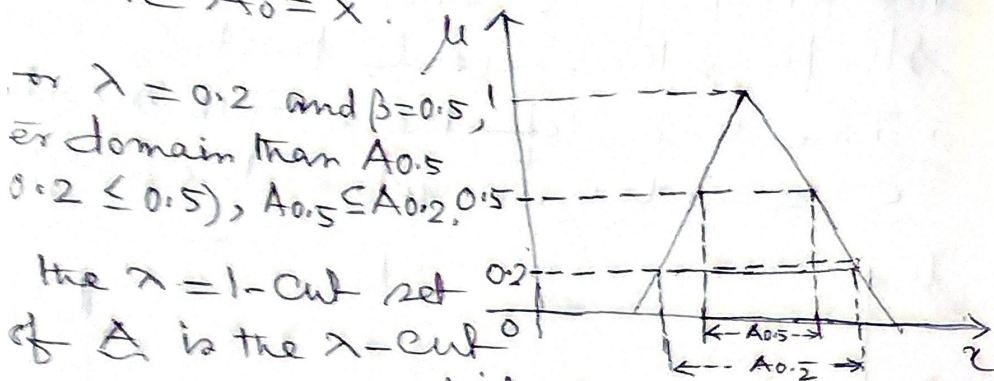 A₀ = X.
λ = 0.2 and β=0.5,
er domain than A0.5
0.2 ≤ 0.5), A0.5 ⊆ A0.2.
the λ = 1-cut set
of A̲ is the λ-cut
μ
1
0.5
0.2
0
A0.5
A0.2
x